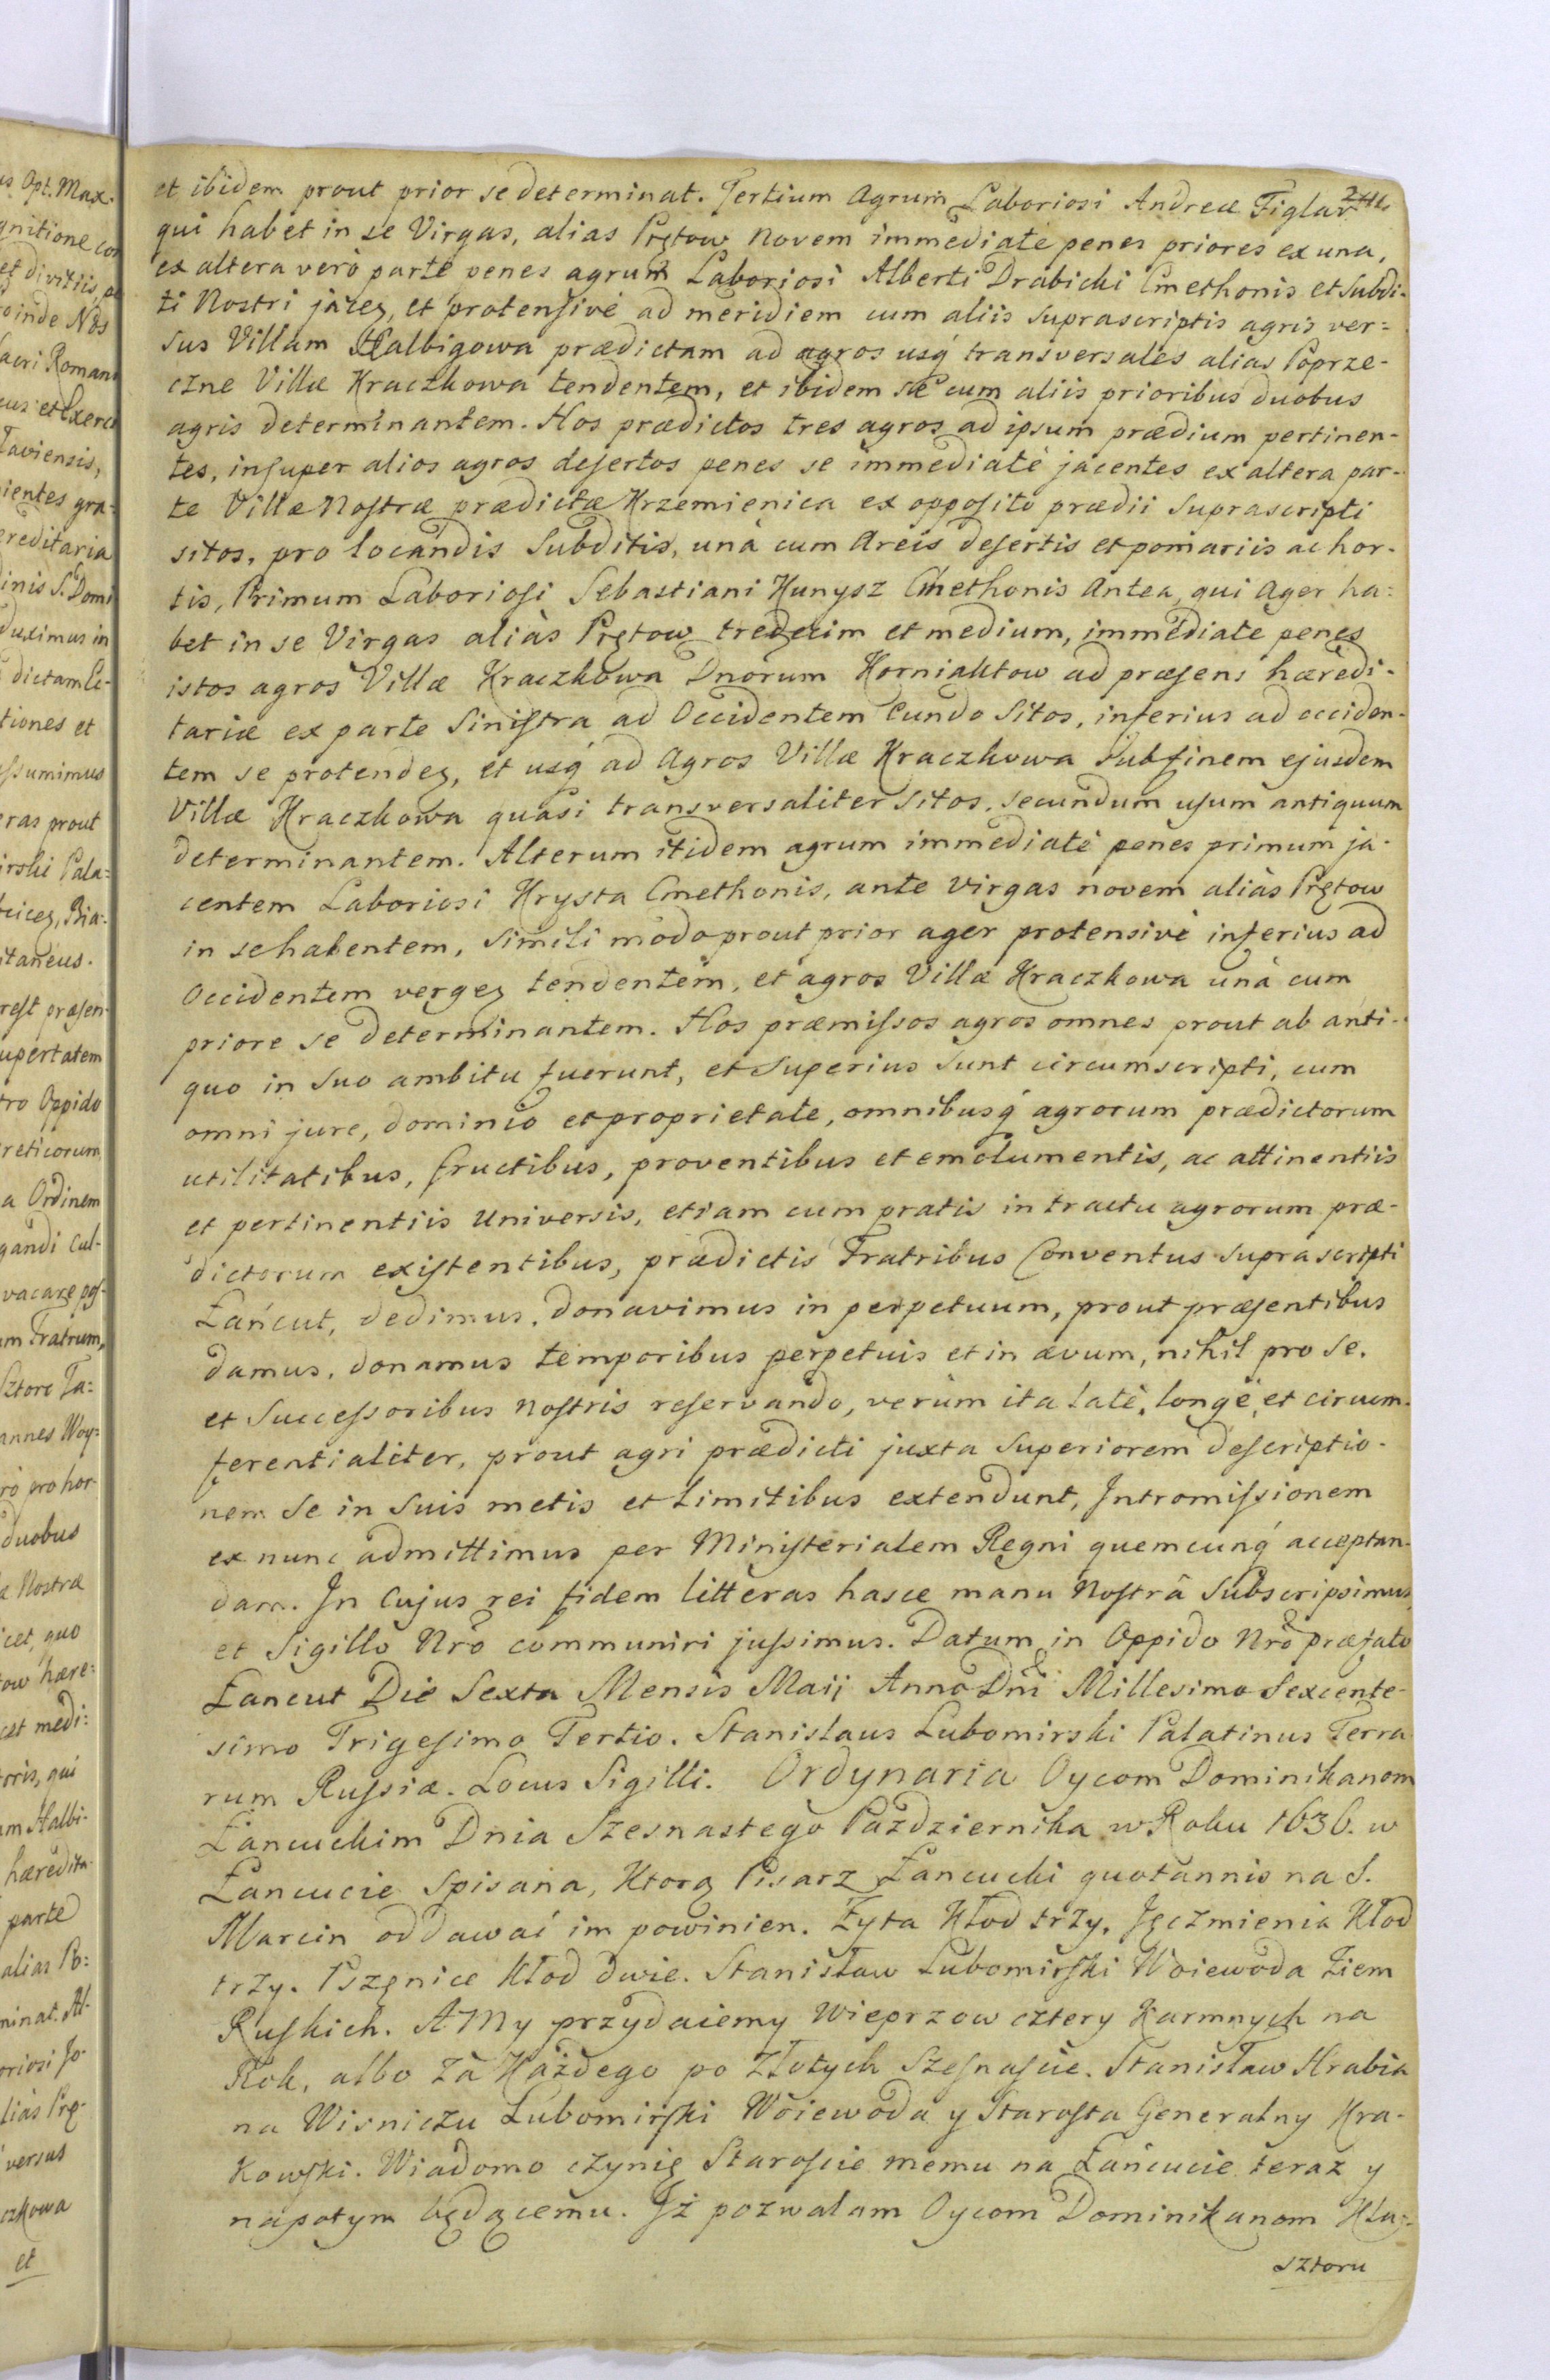 et ibidem prout prior se determinat. Tertium Agrum Laboriosi Andreæ Figlar
qui habet in se Virgas, alias Prętow Novem immediatè penes priores ex una,
ex altera verò parte penes agrum Laboriosi Alberti Drabicki Cmethonis et Subdi-
ti Nostri jacen, et protensivè ad meridiem cum aliis suprascriptis agris ver=
sus Villam Halbigowa prædictam ad agros usq́ transversales alias Poprze-
czne Villæ Kraczkowa tendentem, et ibidem se cum aliis prioribus duobus
agris determinantem. Hos prædictos tres agros ad ipsum prædium pertinen-
tes, insuper alios agros desertos penes se immediatè jacentes ex altera par-
te Villæ Nostræ prædictæ Krzemienica ex opposito prædii suprascripti
sitos, pro locandis Subditis, unà cum Areis desertis et pomariis ac hor-
tis, Primum Laboriosi Sebastiani Kunysz Cmethonis Antea, qui Ager ha=
bet in se Virgas aliàs Prętow tredecim et medium, immediate penes
istos agros Villæ Kraczkowa Dnorum Korniaktow ad præsens hæredi-
tariæ ex parte Sinistra ad Occidentem Eundo Sitos, inferius ad occiden-
tem se protenden, et usq́ ad Agros Villæ Kraczkowa Sub finem ejusdem
Villæ Kraczkowa quasi transversaliter Sitos, secundum usum antiquum
determinantem. Alterum itidem agrum immediatè penes primum ja-
centem Laboriosi Krysta Cmethonis, ante Virgas novem aliàs Prętow
in se habentem, Simili modo prout prior ager protensivè inferius ad
Occidentem vergen tendentem, et agros Villæ Kraczkowa unà cum
priore se determinantem. Hos præmissos agros omnes prout ab anti-
quo in suo ambitu fuerunt, et Superius Sunt circumscripti, cum
omni jure, dominio et proprietate, omnibusq́ agrorum prædictorum
utilitatibus, fructibus, proventibus et emolumentis, ac attinentiis
et pertinentiis Universis, etiam cum pratis in tractu agrorum præ-
dictorum existentibus, prædictis Fratribus Conventus suprascripti
Łańcut, dedimus, donavimus in perpetuum, prout præsentibus
damus, donamus temporibus perpetuis et in ævum, nihil pro se,
et Successoribus nostris reservando, verùm ita latè, longè, et circum-
ferentialiter, prout agri prædicti juxta Superiorem descriptio-
nem Se in Suis metis et Limitibus extendunt, Intromissionem
ex nunc admittimus per Ministerialem Regni quemcunq́ acceptan-
dam. In Cujus rei fidem litteras hasce manu Nostrâ Subscripsimus,
et Sigillo Nrõ communiri jussimus. Datum in Oppido Nrõ præfato
Łancut Die Sexta Mensis Maii Anno Dni Millesimo Sexcente-
simo Trigesimo Tertio. Stanislaus Lubomirski Palatinus Terra
rum Russiæ. Locus Sigilli. Ordynaria Oycom Dominikanom
Łancuckim Dnia Szesnastego Pazdziernika w Roku 1636. w
Łancucie Spisana, Ktorą Pisarz Łancucki quotannis na S.
Marcin oddawać im powinien. Żyta Kłod trzy, Jęczmienia Kłod
trzy. Pszęnice Kłod dwie. Stanisław Lubomirski Woiewoda Ziem
Ruskich. A My przydaiemy Wieprzow cztery Karmnych na
Rok, albo za Każdego po Złotych Szesnaście. Stanisław Hrabia
na Wisniczu Lubomirski Woiewoda y Starosta Generalny Kra-
kowski. Wiadomo czynię Staroscie memu na Łańcucie teraz y
napotym będącemu. Iż pozwalam Oycom Dominikanom Kla=
sztoru